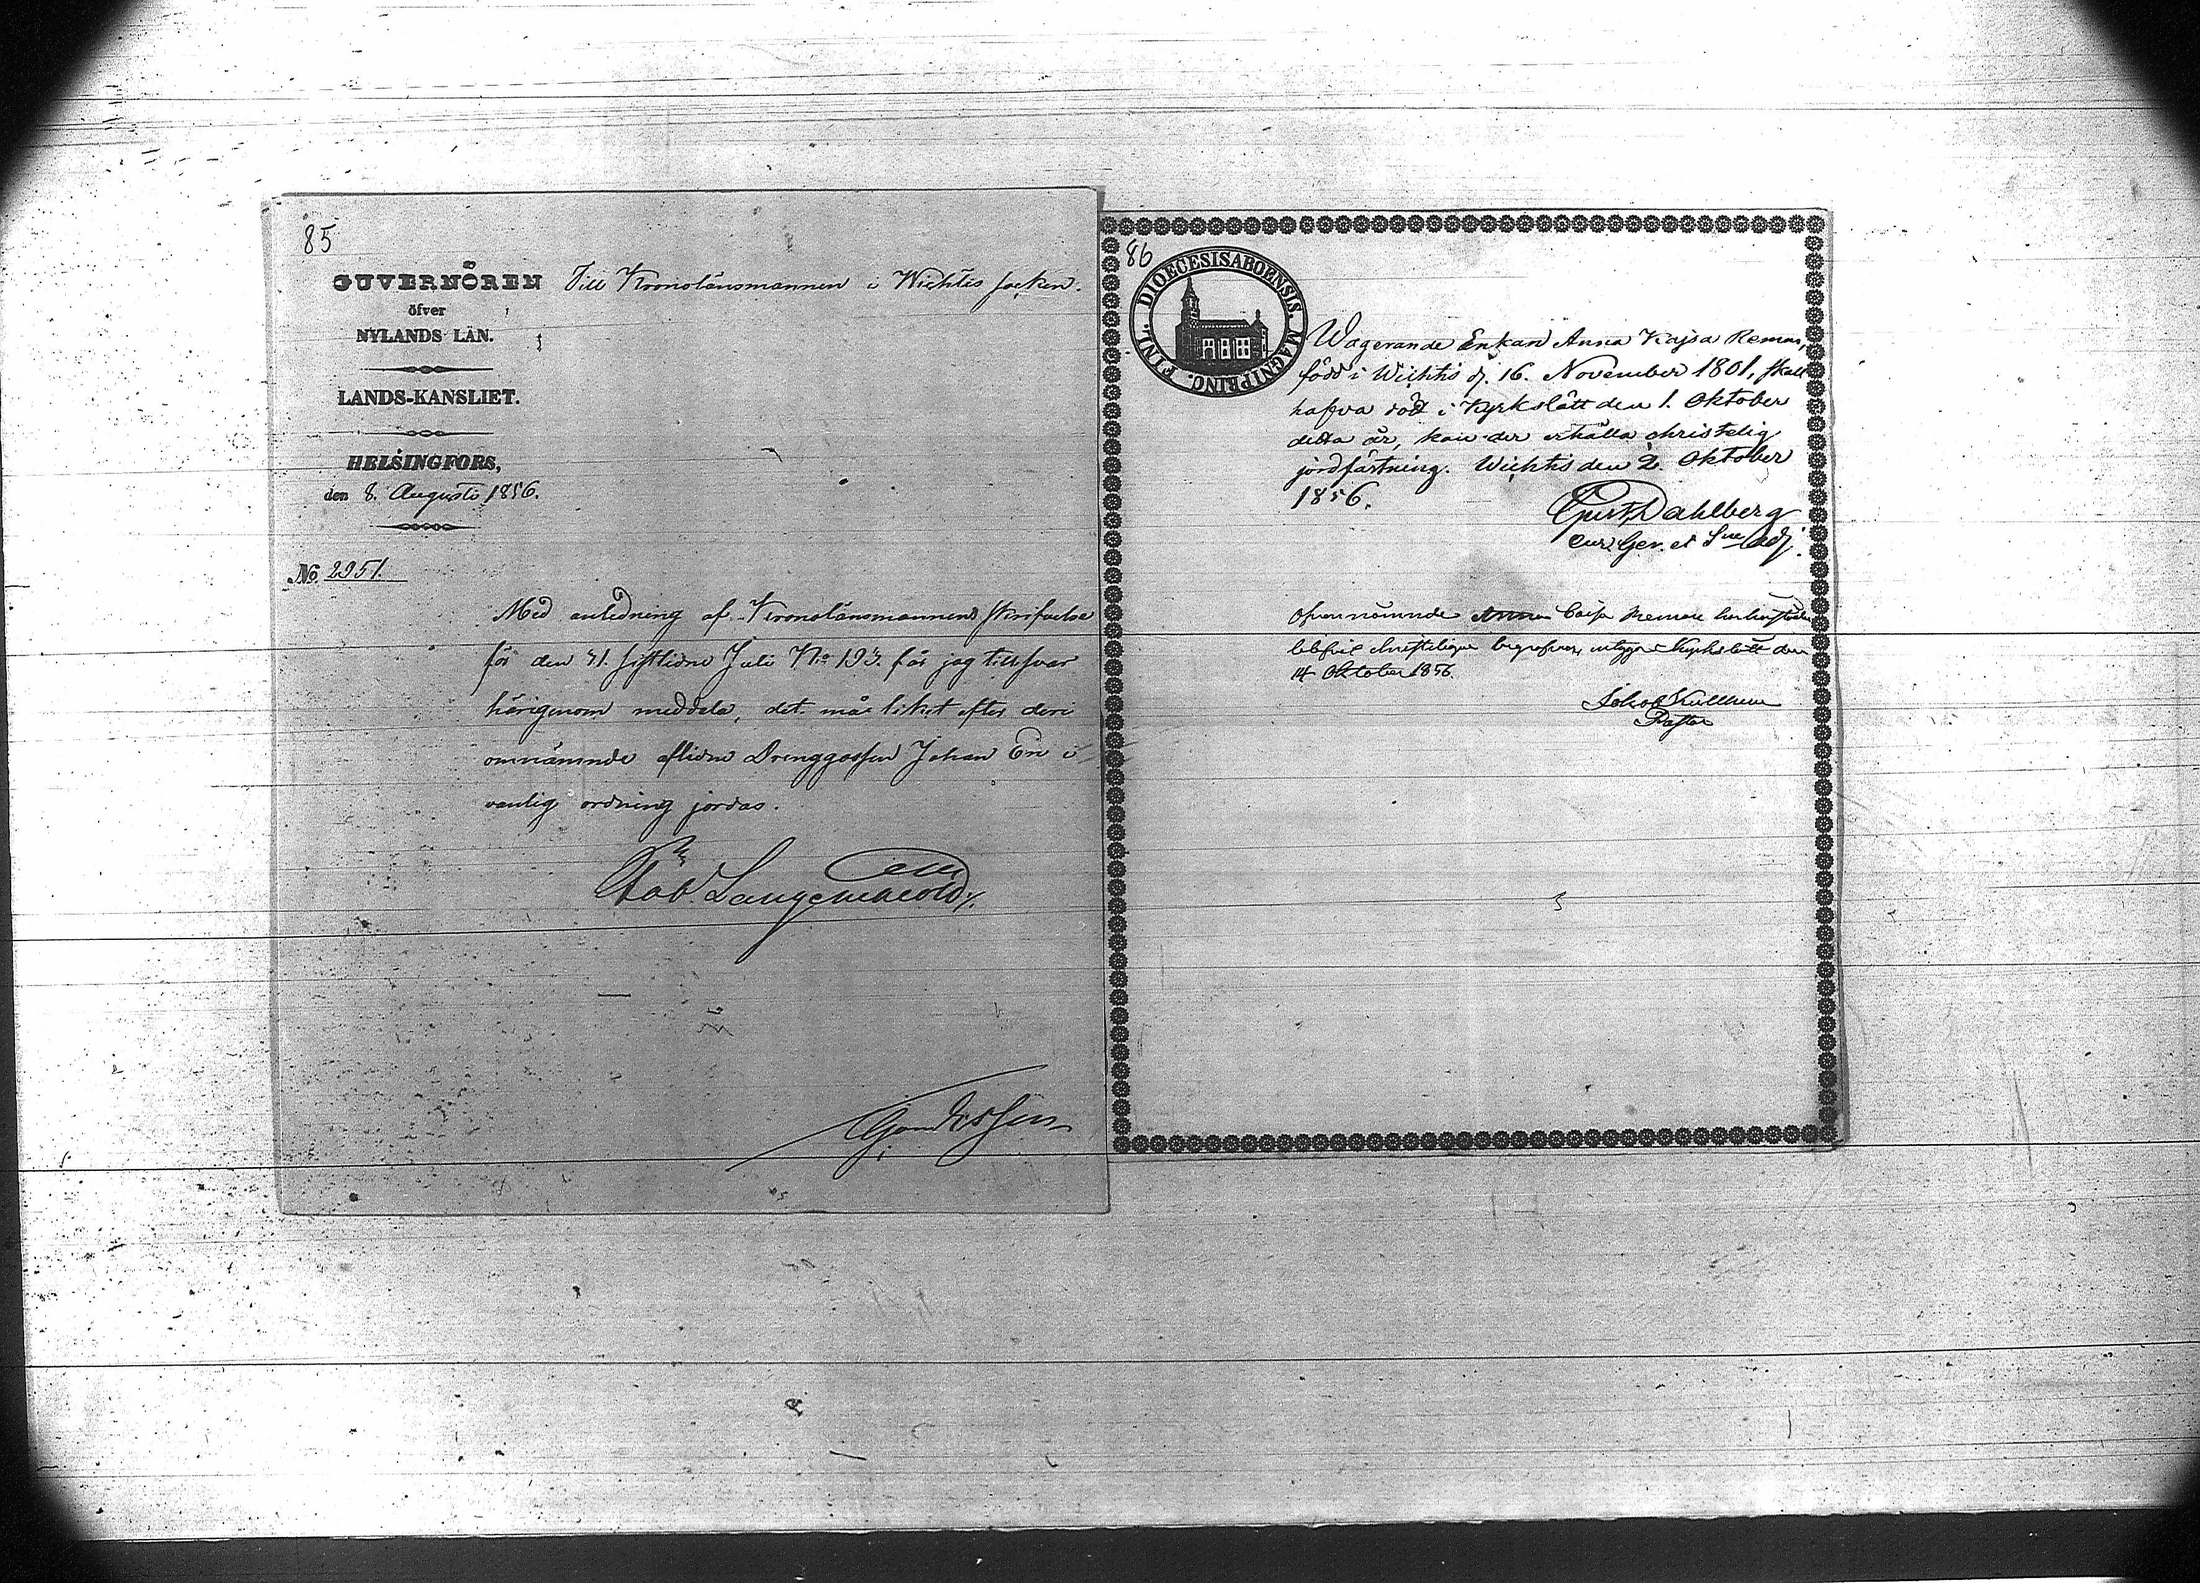 85
GUVERNÖREN
öfver
NYLANDS LÄN.
LANDS-KANSLIET.
HELSINGFORS,
den 8. Augusti 1856.
No. 2951.
Till Kronolänsmannen i Wichtis socken.
Med anledning af Kronolänsmannens skrifvelse
för den 31. sistlidne Juli No 193. får jag till svar
härigenom meddela, det må liket efter deri
omnämnde aflidne Drenggossen Johan i
vanlig ordning jordas.
Langenskiöld
86
FINL. DIOECESIS ABOENSIS. MAGNI PRINC.
Wagerande Enkan Anna Kajsa Reman,
född i Wichtis d. 16. November 1801, skall
hafva död i Kyrkslätt den 1. Oktober
detta år, kan der erhålla christelig
jordfästning. Wichtis den 2. Oktober
1856.
Gust. Dahlberg
Ofvannämnde Anna Caisa Reman har
christeligen begrafven, intygar Kyrkslätt den
14 Oktober 1856.
Pastor